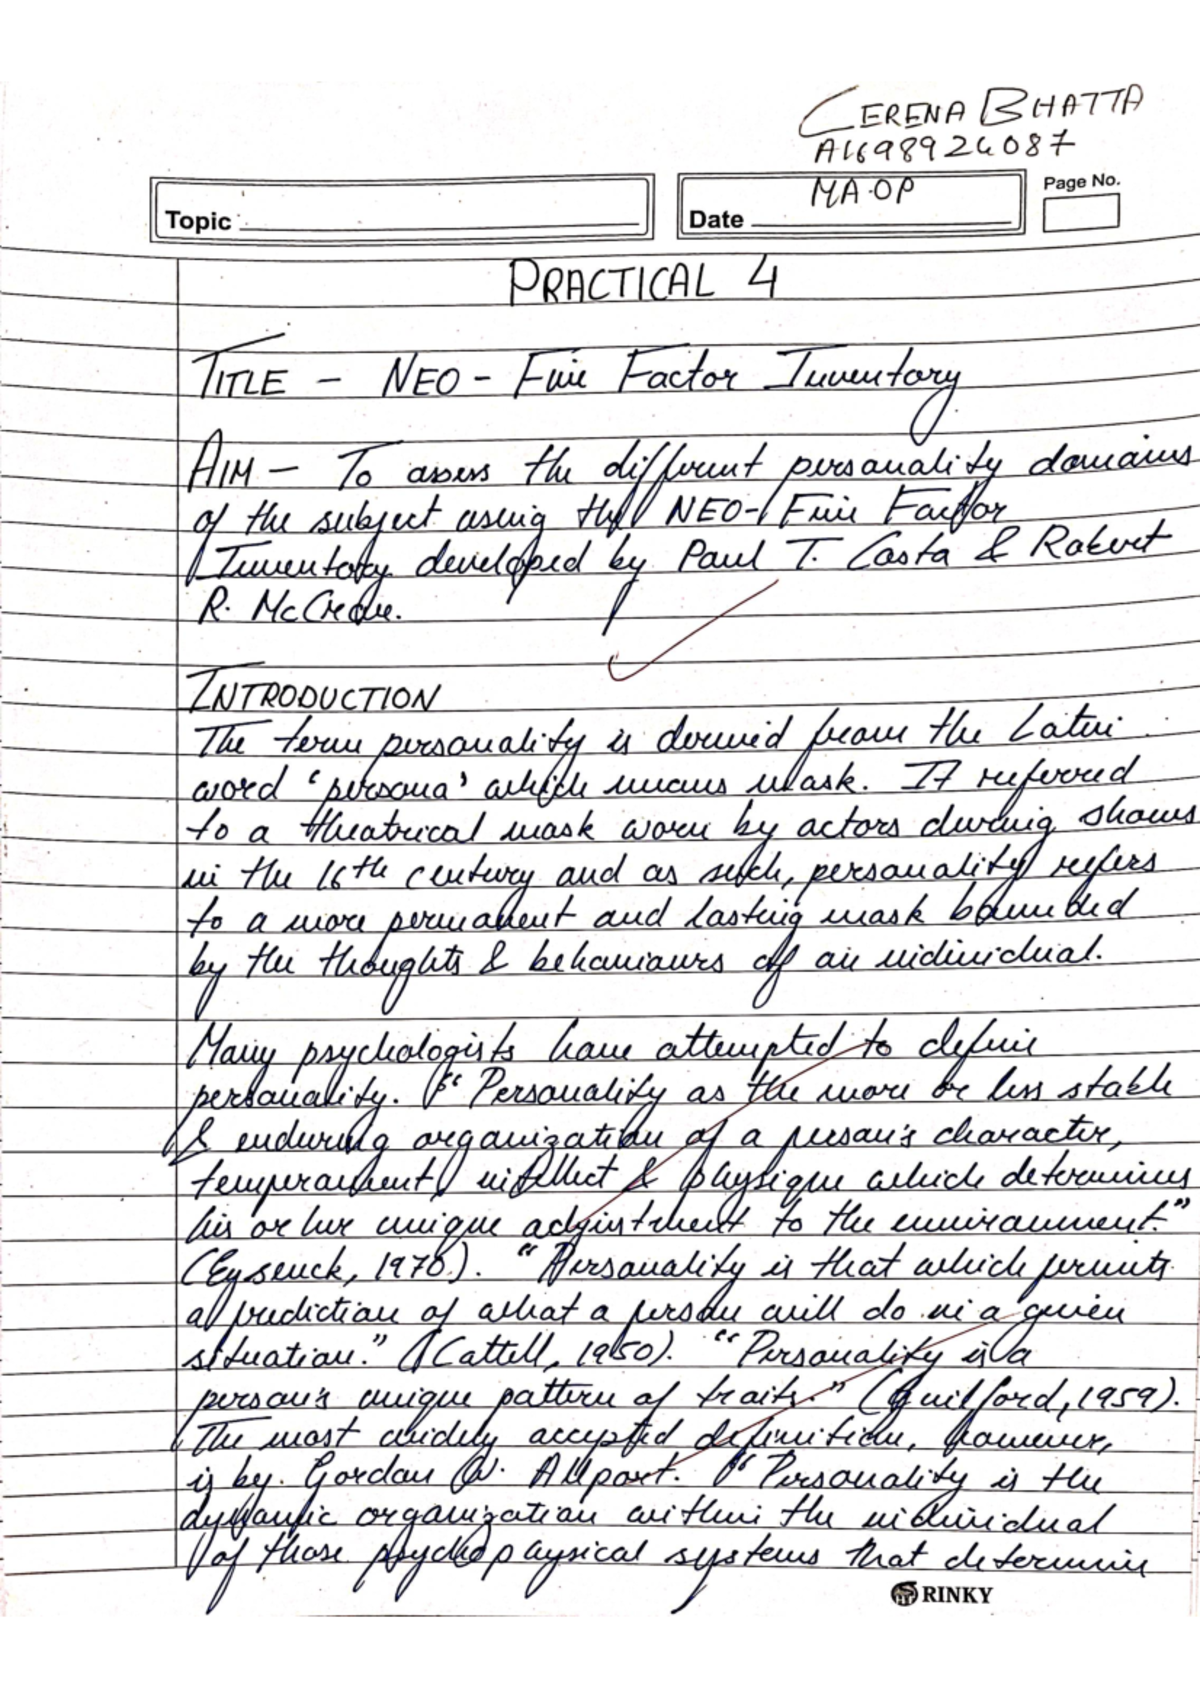 CERENA BHATTA
A1698924087
MA.OP
Page No.
Topic
Date
PRACTICAL 4
TITLE - NEO - Five Factor Inventory
AIM - To assess the different personality domains
of the subject using the NEO - Five Factor
Inventory developed by Paul T. Costa & Robert
R. McCrae.
INTRODUCTION
The term personality is derived from the Latin
word 'persona' which means mask. It referred
to a theatrical mask worn by actors during shows
in the 16th century and as such, personality refers
to a more permanent and lasting mask bounded
by the thoughts & behaviours of an individual.
Many psychologists have attempted to define
personality. "Personality as the more or less stable
& enduring organization of a person's character,
temperament, intellect & physique which determines
his or her unique adjustment to the environment."
(Eysenck, 1970). "Personality is that which permits
a prediction of what a person will do in a given
situation." (Cattell, 1950). "Personality is a
person's unique pattern of traits." (Guilford, 1959).
The most widely accepted definition, however,
is by Gordan W. Allport. "Personality is the
dynamic organization within the individual
of those psychophysical systems that determine
RINKY